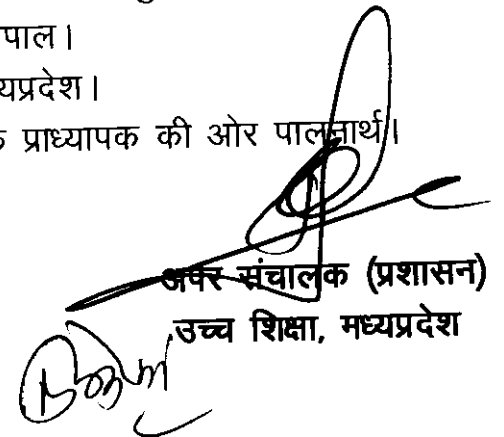 पाल।
यप्रदेश।
प्राध्यापक की ओर पालनार्थ।
अपर संचालक (प्रशासन)
उच्च शिक्षा, मध्यप्रदेश